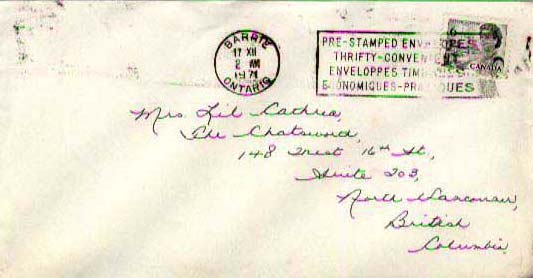 BARRIE
17 XII
2 AM
1971
ONTARIO
PRE-STAMPED ENVELOPES
THRIFTY-CONVENIENT
ENVELOPPES TIMBRÉES
ÉCONOMIQUES-PRATIQUES
6
CANADA
Mrs. Lil
The Chatsword,
148 West 16th St.,
Suite 203,
North Vancouver,
British
Columbia